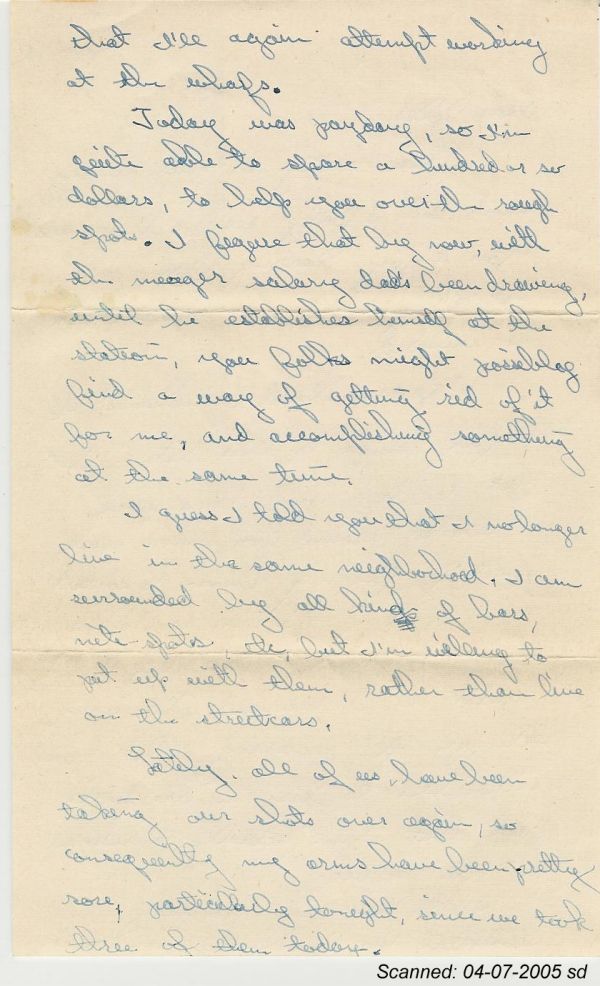 that I'll again attempt working
at the whafs.
Today was payday, so I'm
quite able to spare a hundred or so
dollars, to help you over the rough
spots. I figure that by now, with
the meager salary dad's been drawing,
until he establishes himself at the
station, you folks might possiblly
find a way of getting rid of it
for me, and accomplishing something
at the same time.
I guess I told you that I no longer
live in the same neighborhood. I am
surrounded by all kinds of bars,
nite spots, etc, but I'm willing to
put up with them, rather than live
on the streetcars.
Lately, all of us have been
taking our shots over again, so
consequently my arms have been pretty
sore, particularly tonight, since we took
three of them today.
Scanned: 04-07-2005 sd